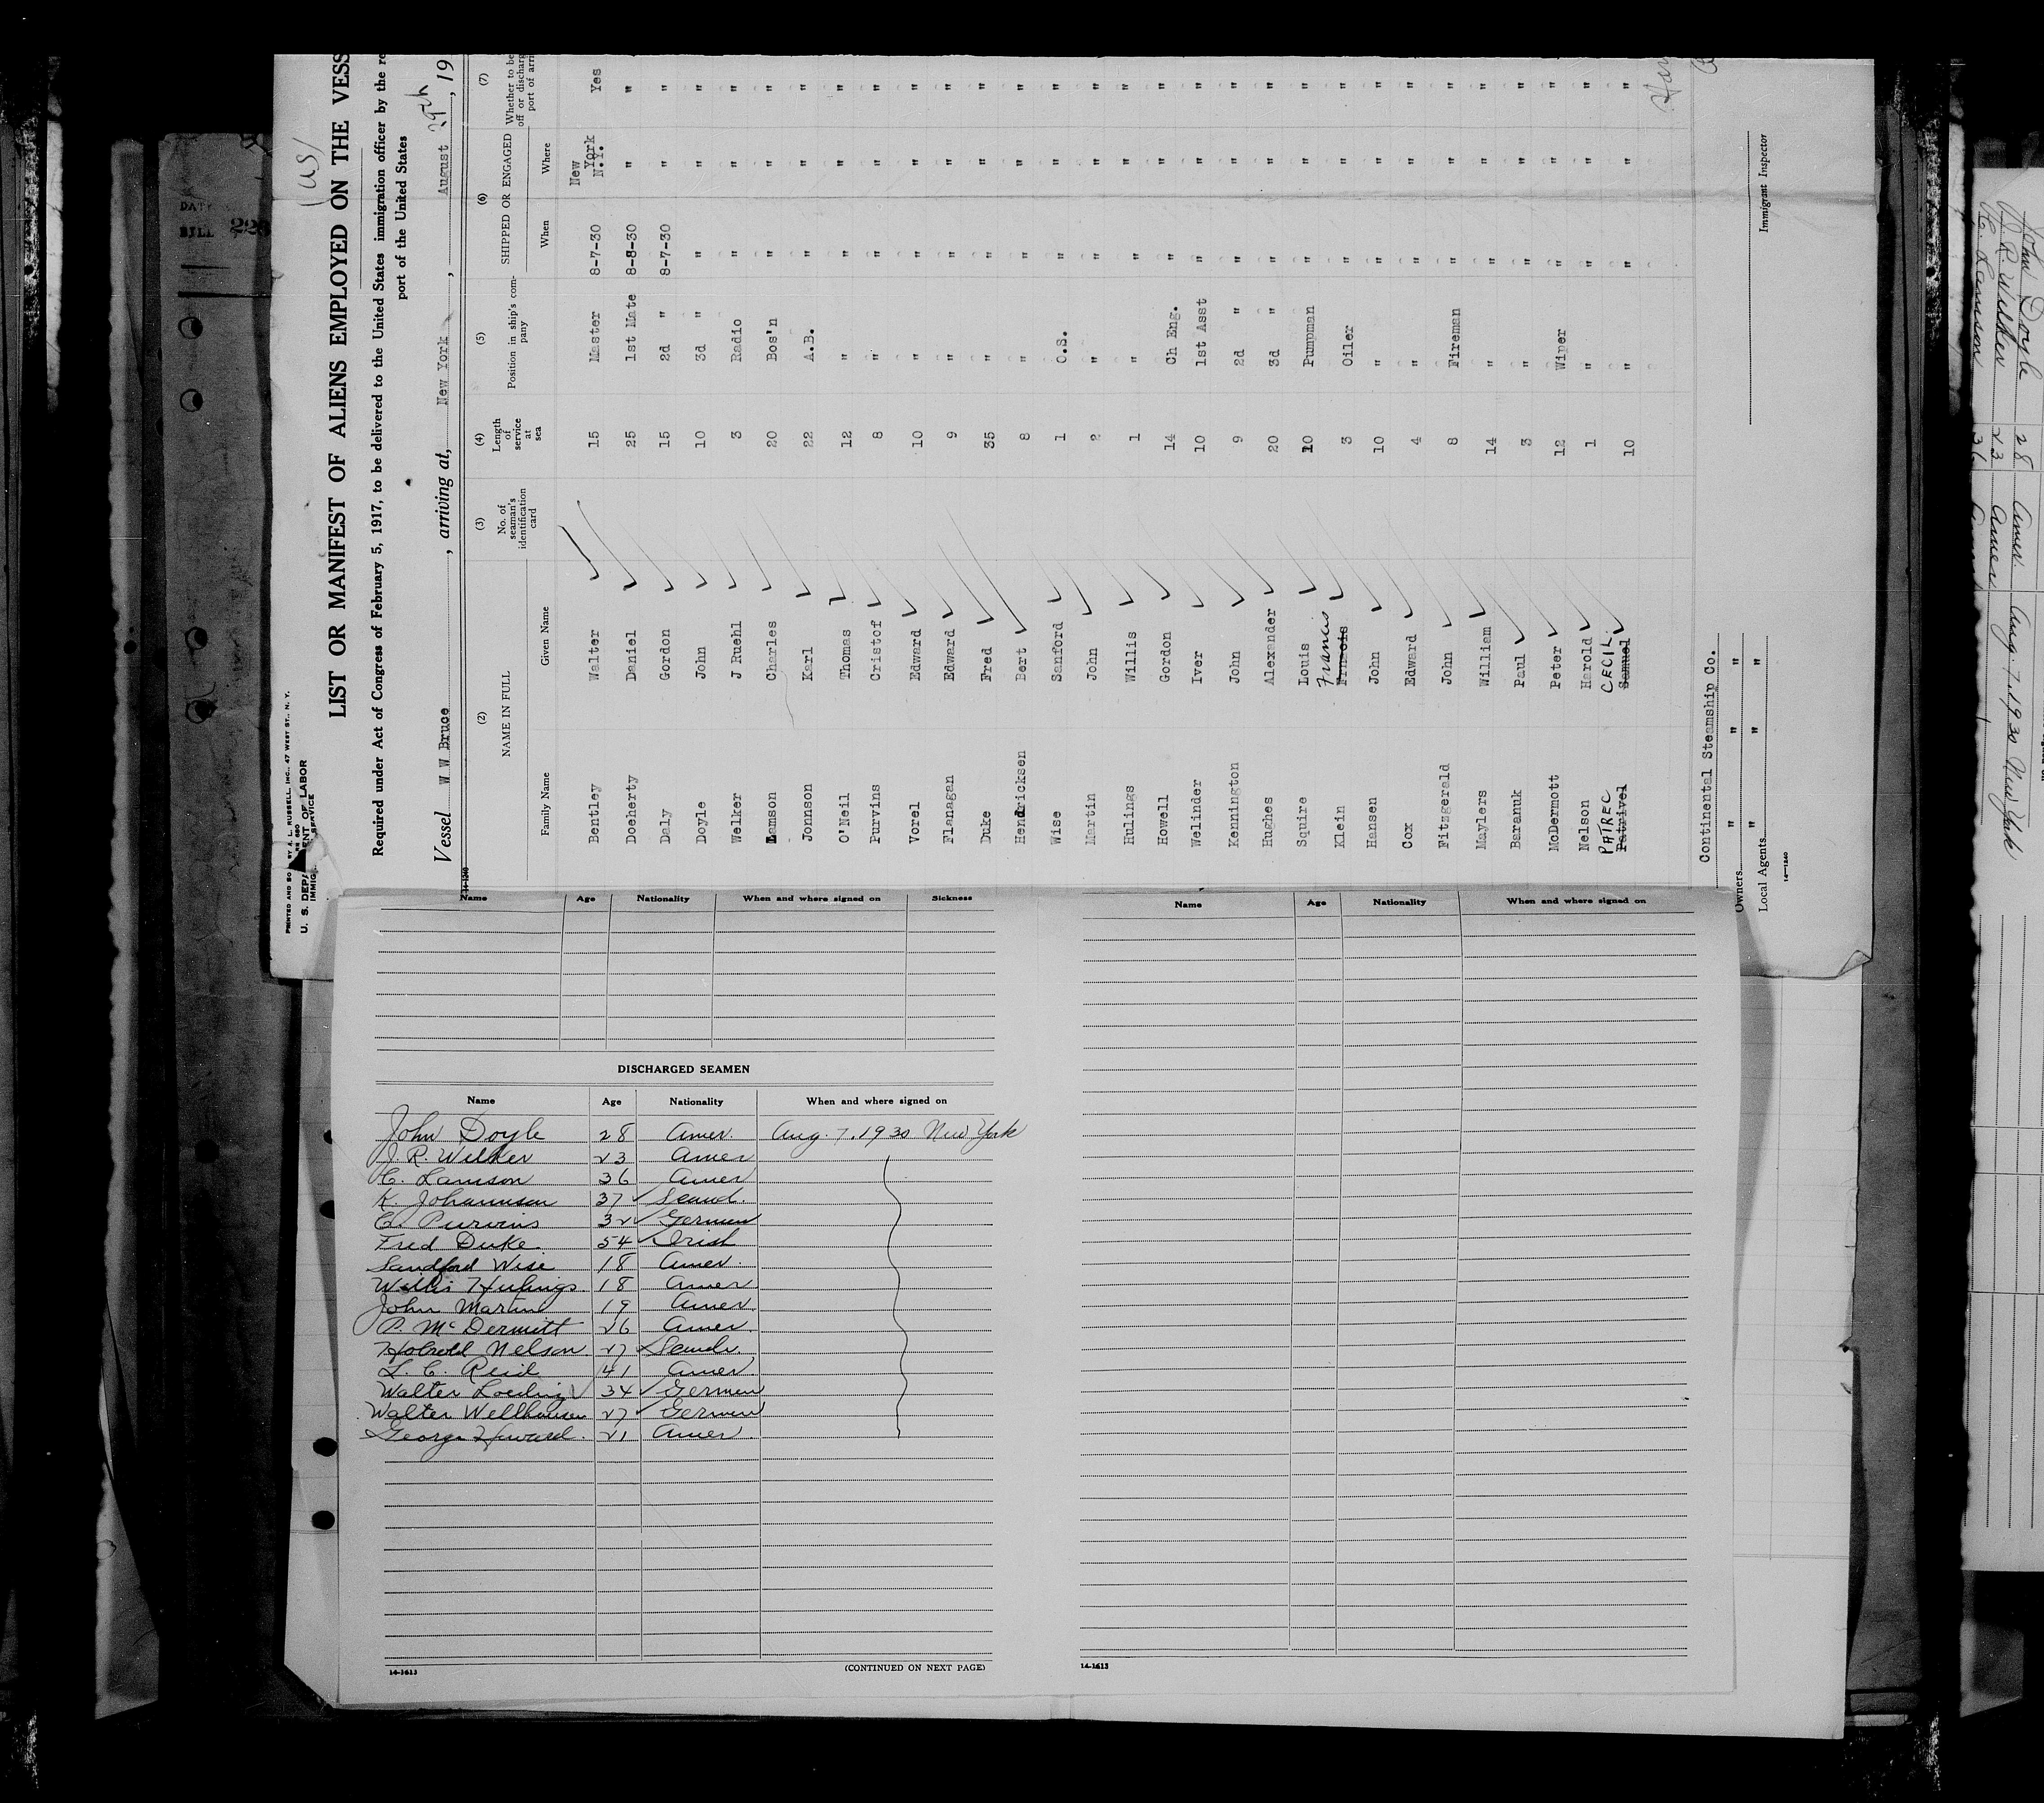 (US)
PRINTED AND SO BY A. L. RUSSELL, INC., 47 WEST ST., N. Y.
U. S. DEPA ENT OF LABOR
IMMIG SERVICE
LIST OR MANIFEST OF ALIENS EMPLOYED ON THE VESS
Required under Act of Congress of February 5, 1917, to be delivered to the United States immigration officer by the re
port of the United States
Vessel W W Bruce, arriving at, New York, August 29th, 19
(2) (3) (4) (5) (6) (7)
NAME IN FULL No. of seaman's identification card Length of service at sea Position in ship's company SHIPPED OR ENGAGED Whether to be off or discharg port of arri
Family Name Given Name When Where
Bentley Walter 15 Master 8-7-30 New York N.Y. Yes
Doeherty Daniel 25 1st Mate 8-8-30 " "
Daly Gordon 15 2d " 8-7-30 " "
Doyle John 10 3d " " " "
Welker J Ruehl 3 Radio " " "
Lamson Charles 20 Bos'n " " "
Jonnson Karl 22 A.B. " " "
O'Neil Thomas 12 " " " "
Purvins Cristof 8 " " " "
Vorel Edward 10 " " " "
Flanagan Edward 9 " " " "
Duke Fred 35 " " " "
Hendricksen Bert 8 " " " "
Wise Sanford 1 O.S. " " "
Martin John 2 " " " "
Hulings Willis 1 " " " "
Howell Gordon 14 Ch Eng. " " "
Welinder Iver 10 1st Asst " " "
Kennington John 9 2d " " " "
Hughes Alexander 20 3d " " " "
Squire Louis 10 Pumpman " " "
Francis
Klein 3 Oiler " " "
Hansen John 10 " " " "
Cox Edward 4 " " " "
Fitzgerald John 8 Fireman " " "
Maylers William 14 " " " "
Baranuk Paul 3 " " " "
McDermott Peter 12 Wiper " " "
Nelson Harold 1 " " " "
PATREC CECIL
Patrivel Samuel 10 " " " "
Continental Steamship Co.
Owners " " "
Local Agents " " "
Immigrant Inspector
14-1240
Name Age Nationality When and where signed on Sickness
DISCHARGED SEAMEN
Name Age Nationality When and where signed on
John Doyle 28 Amer. Aug. 7. 1930 New York
J. R. Welker 23 Amer
C. Lamson 36 Amer
K. Johannson 37 Scand.
C. Purvins 32 German
Fred Duke 54 Irish
Sandford Wise 18 Amer.
Willis Hulings 18 Amer
John Martin 19 Amer.
P. McDermitt 26 Amer.
Harold Nelson 27 Scand.
L. C. Reid 41 Amer.
Walter 34 German
Walter Wellhausen 27 German
George Howard. 21 Amer.
14-1613
(CONTINUED ON NEXT PAGE)
Name Age Nationality When and where signed on
14-1613
John Doyle 28 Amer Aug. 7. 1930 New York
J. R. Welker 23 Amer
C. Lamson 36
DATE
BILL